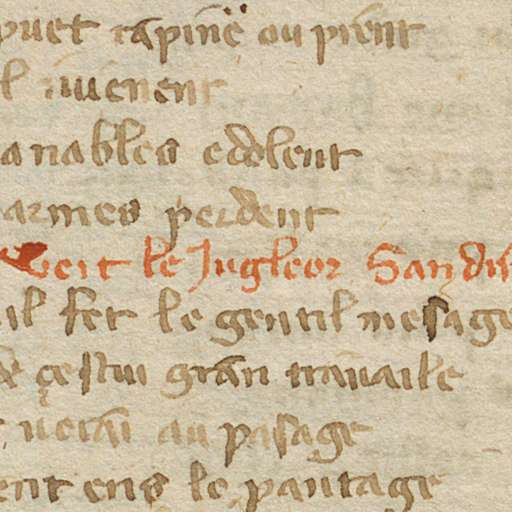 puet rapine ou prent
il iuuenent
anables e dolent
armes perdent
Veit le Jugleor San dis
il fet le gentil mesage
de çestui gran trauaile
uerai au pasage
ent ens le pantage